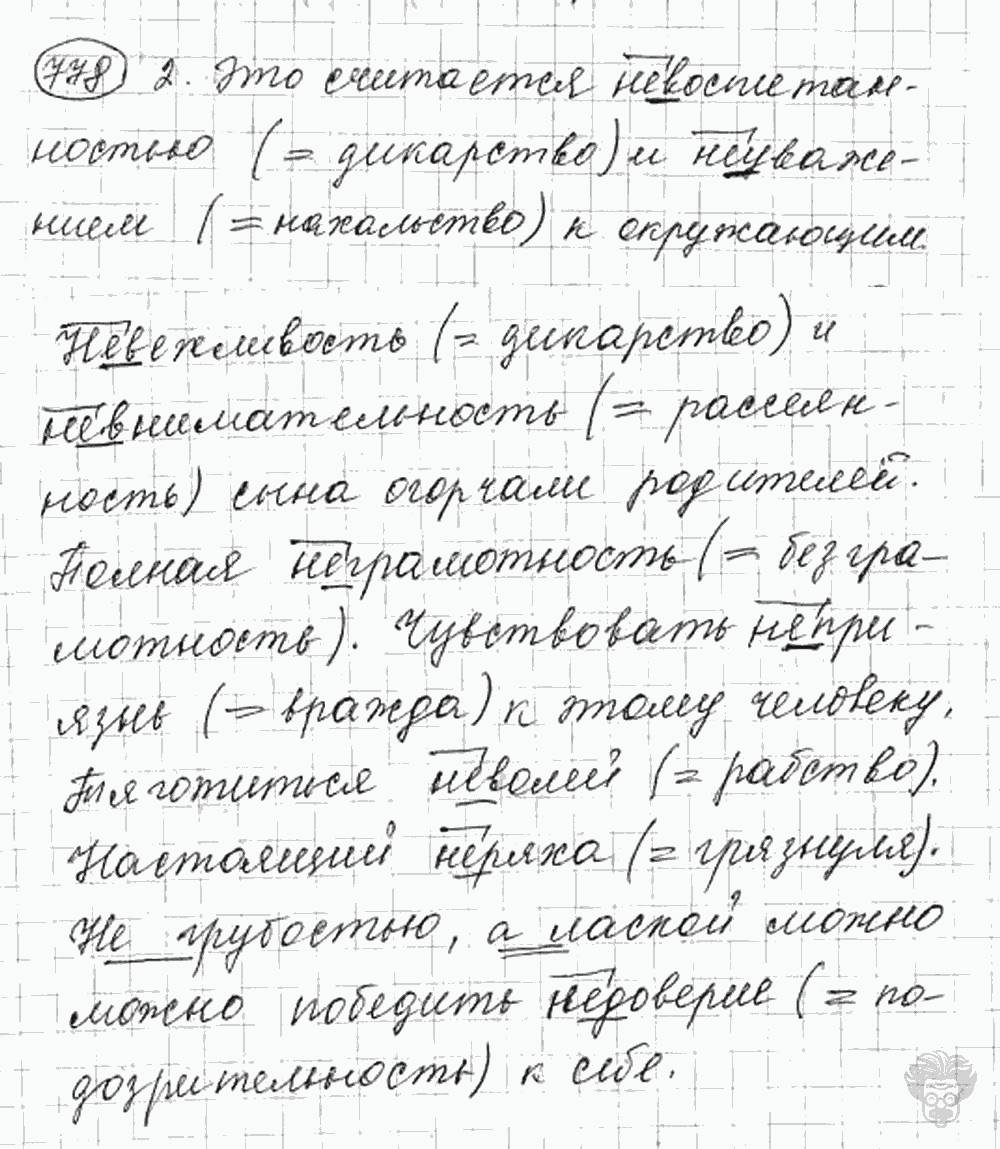 778 2. Это считается невоспитан-
ностью (= дикарство) и неуваже-
нием (= нахальство) к окружающим.
Невежливость (= дикарство) и
невнимательность (= рассеян-
ность) сына огорчали родителей.
Полная неграмотность (= безгра-
мотность). Чувствовать непри-
язнь (= вражда) к этому человеку.
Тяготиться неволей (= рабство).
Настоящий неряха (= грязнуля).
Не грубостью, а лаской можно
можно победить недоверие (= по-
дозрительность) к себе.